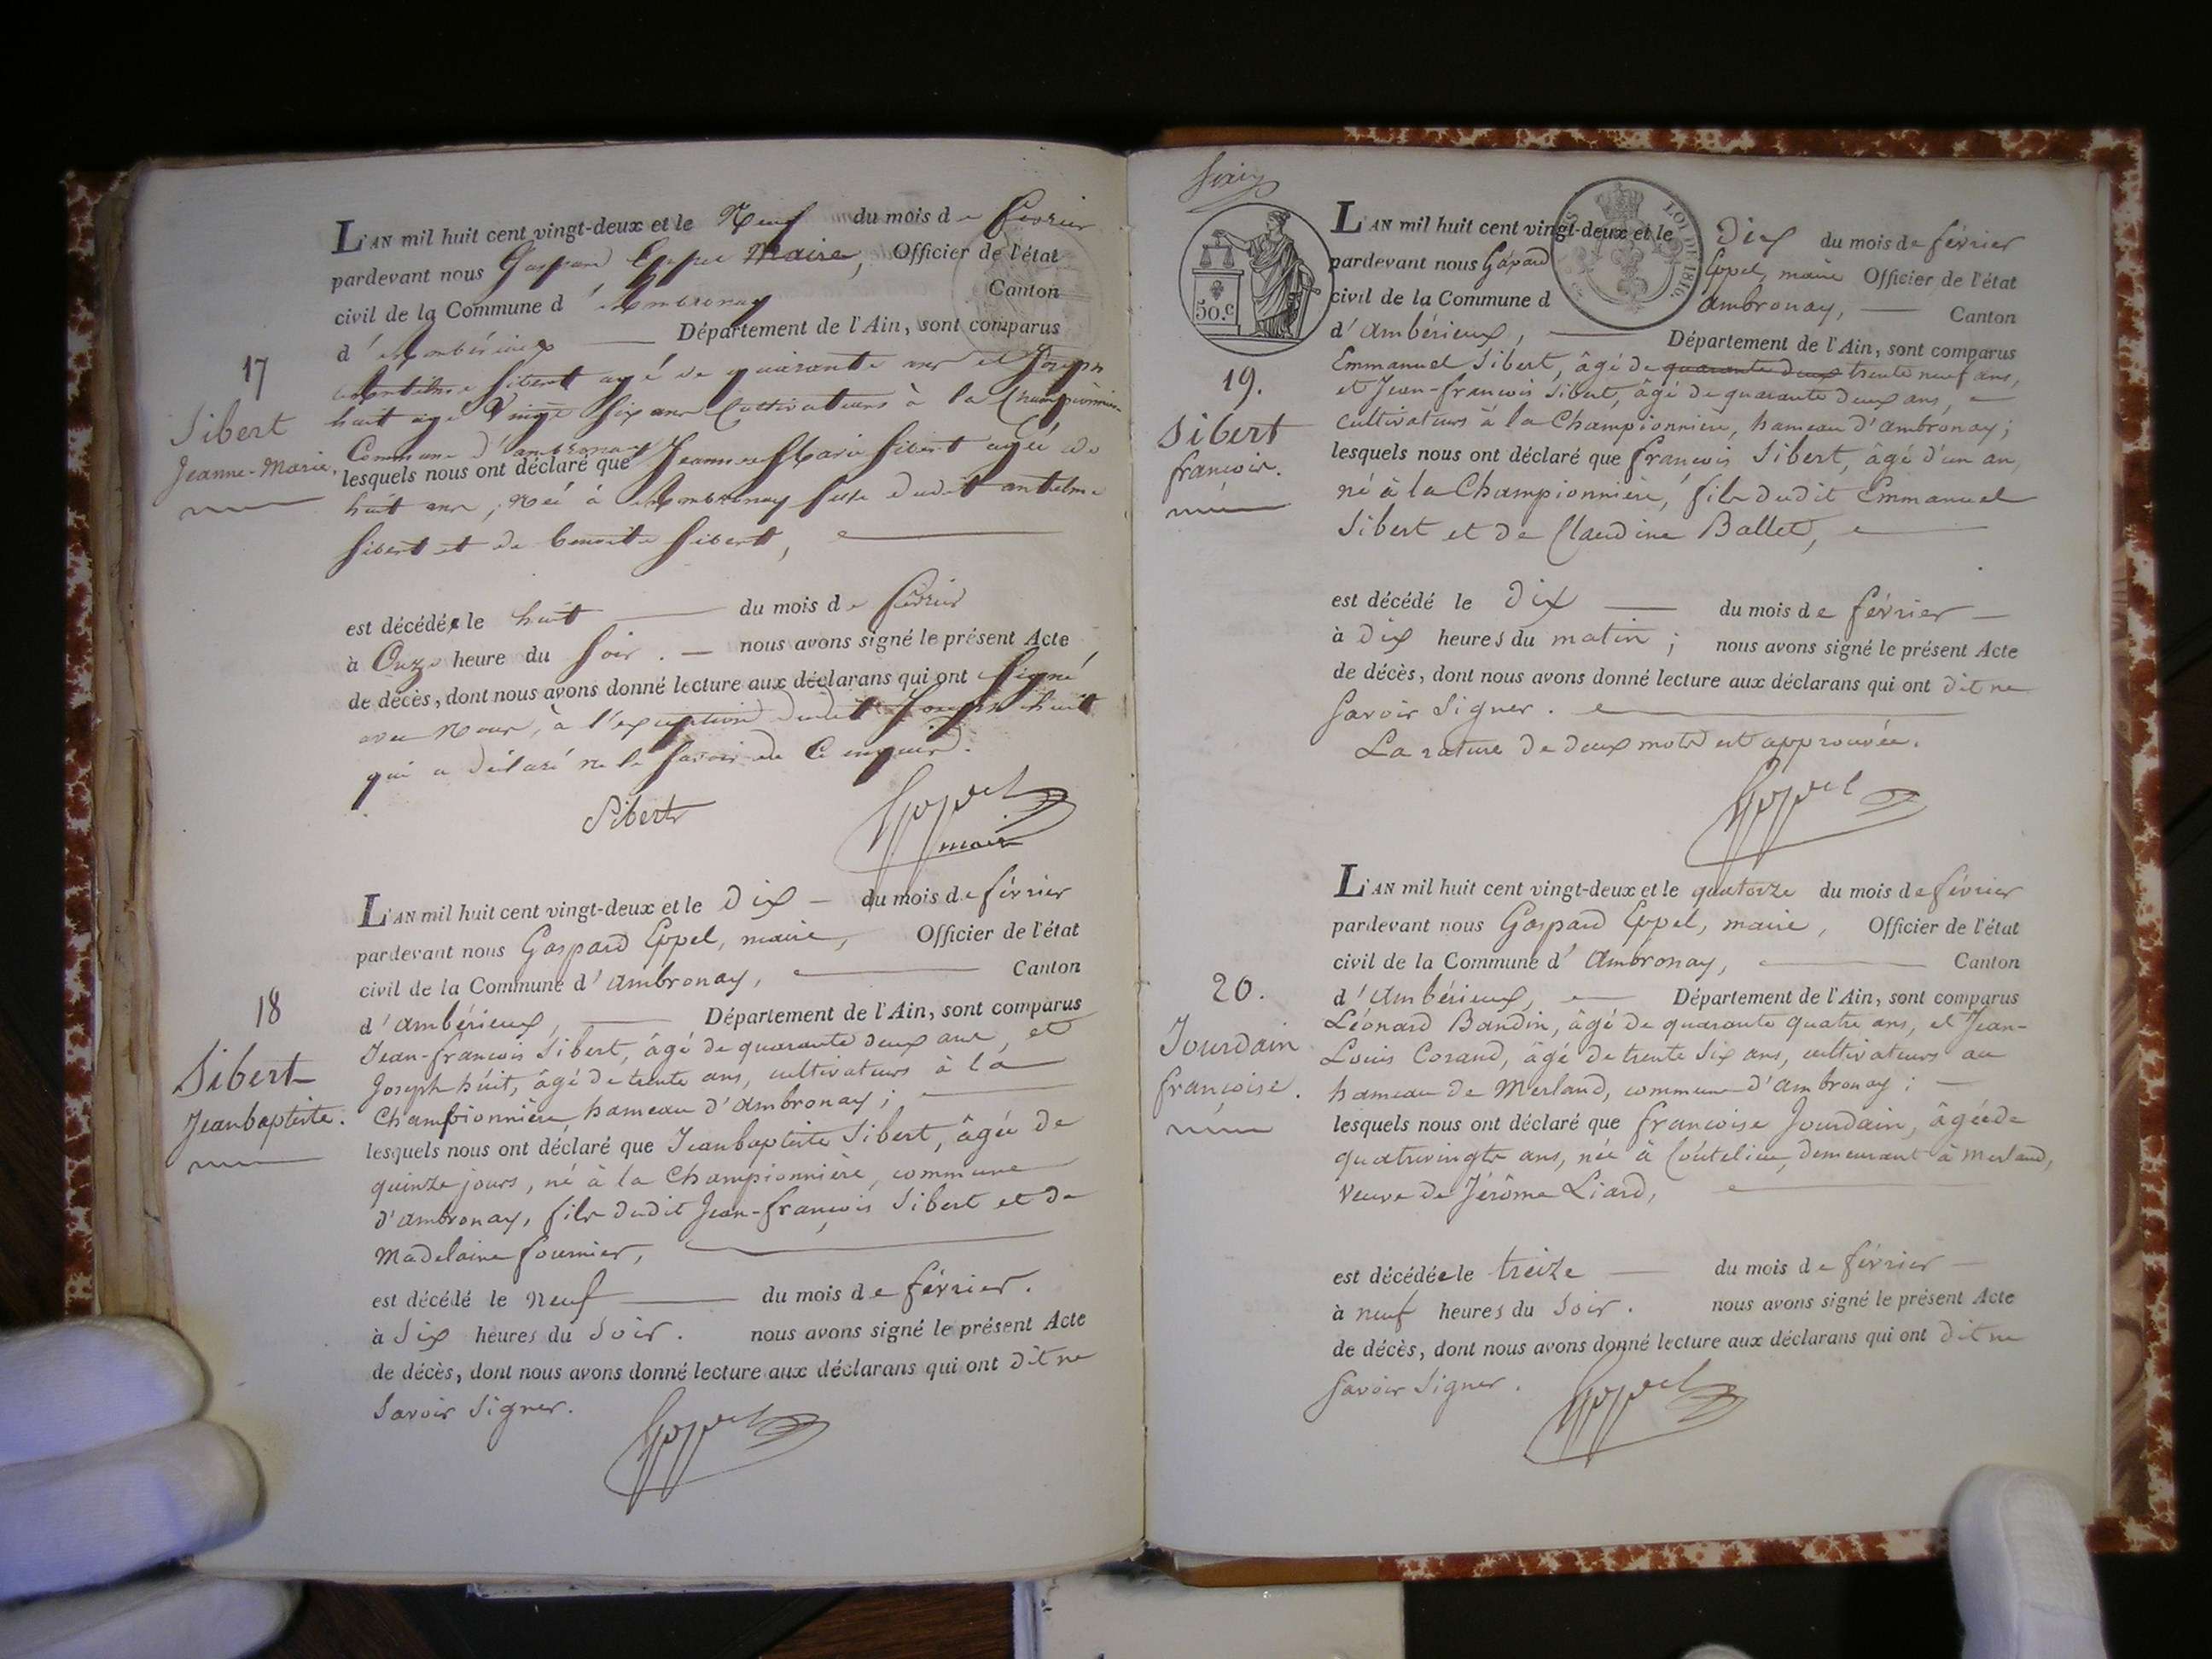 L'AN mil huit cent vingt-deux et le Neuf du mois de février
pardevant nous Gaspard Eppel Maire, Officier de l'état
civil de la Commune d'Ambronay Canton
d'Ambérieux Département de l'Ain, sont comparus
17
Sibert
Jeanne-Marie.
Antelme Sibert agé de quarante ans et Joseph
huit agé Vingt six ans Cultivateurs à la Championnière
Commune d'ambronay
lesquels nous ont déclaré que Jeanne Marie Sibert agée de
huit ans, née à Ambronay fille dudit antelme
Sibert et de benoite Sibert,
est décédée le huit du mois de février
à Onze heure du Soir. nous avons signé le présent Acte
de décès, dont nous avons donné lecture aux déclarans qui ont Signé
avec Nous, à l'exception dudit Joseph huit
qui a déclaré ne le Savoir de Ce enquis.
Sibert
Eppel
maire
L'AN mil huit cent vingt-deux et le Dix du mois de février
pardevant nous Gaspard Eppel, maire, Officier de l'état
civil de la Commune d'Ambronay, Canton
18
Sibert
Jeanbaptiste.
d'Ambérieux, Département de l'Ain, sont comparus
Jean-françois Sibert, âgé de quarante deux ans, et
Joseph huit, âgé de trente ans, cultivateurs à la
Championnière, hameau d'Ambronay;
lesquels nous ont déclaré que Jeanbaptiste Sibert, âgée de
quinze jours, né à la Championnière, commune
d'ambronay, fils dudit Jean-françois Sibert et de
Madelaine fournier,
est décédé le neuf du mois de février.
à Six heures du Soir. nous avons signé le présent Acte
de décès, dont nous avons donné lecture aux déclarans qui ont dit ne
Savoir Signer.
Eppel
50.c
LOI DE 1816.
L'AN mil huit cent vingt-deux et le Dix du mois de février
pardevant nous Gaspard Eppel, maire Officier de l'état
civil de la Commune d Ambronay, Canton
d'Ambérieux, Département de l'Ain, sont comparus
19.
Sibert
françois.
Emmanuel Sibert, âgé de quarante deux trente neuf ans,
et Jean-françois Sibert, âgé de quarante deux ans,
cultivateurs à la Championnière, hameau d'ambronay;
lesquels nous ont déclaré que françois Sibert, âgé d'un an,
né à la Championnière, fils dudit Emmanuel
Sibert et de Claudine Ballet,
est décédé le Dix du mois de février
à Dix heures du matin; nous avons signé le présent Acte
de décès, dont nous avons donné lecture aux déclarans qui ont dit ne
Savoir Signer.
La rature de deux mots est approuvée.
Eppel
L'AN mil huit cent vingt-deux et le quatorze du mois de février
pardevant nous Gaspard Eppel, maire, Officier de l'état
civil de la Commune d'Ambronay, Canton
20.
Jourdain
françoise.
d'Ambérieux, Département de l'Ain, sont comparus
Léonard Bandin, âgé de quarante quatre ans, et Jean-
Louis Corand, âgé de trente Six ans, cultivateurs au
hameau de Merland, commune d'ambronay;
lesquels nous ont déclaré que françoise Jourdain, âgée de
quatrevingts ans, née à Coutelieu, demeurant à Merland,
Veuve de Jérôme Liard,
est décédée le treize du mois de février
à neuf heures du Soir. nous avons signé le présent Acte
de décès, dont nous avons donné lecture aux déclarans qui ont dit ne
Savoir Signer.
Eppel